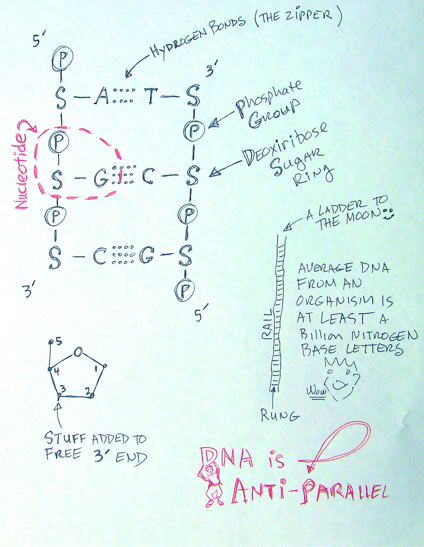 5′
HYDROGEN BONDS (THE ZIPPER)
3′
P
S – A :::: T – S
P
P
Phosphate
Group
Nucleotide
S – G :::::: C – S
DEOXIRIBOSE
SUGAR
RING
P
P
S – C :::::: G – S
3′
P
5′
A LADDER TO
THE MOON
RAIL
RUNG
AVERAGE DNA
FROM AN
ORGANISM IS
AT LEAST A
BILLION NITROGEN
BASE LETTERS
WOW
5
O
4
1
3
2
STUFF ADDED TO
FREE 3′ END
DNA is
ANTI-PARALLEL